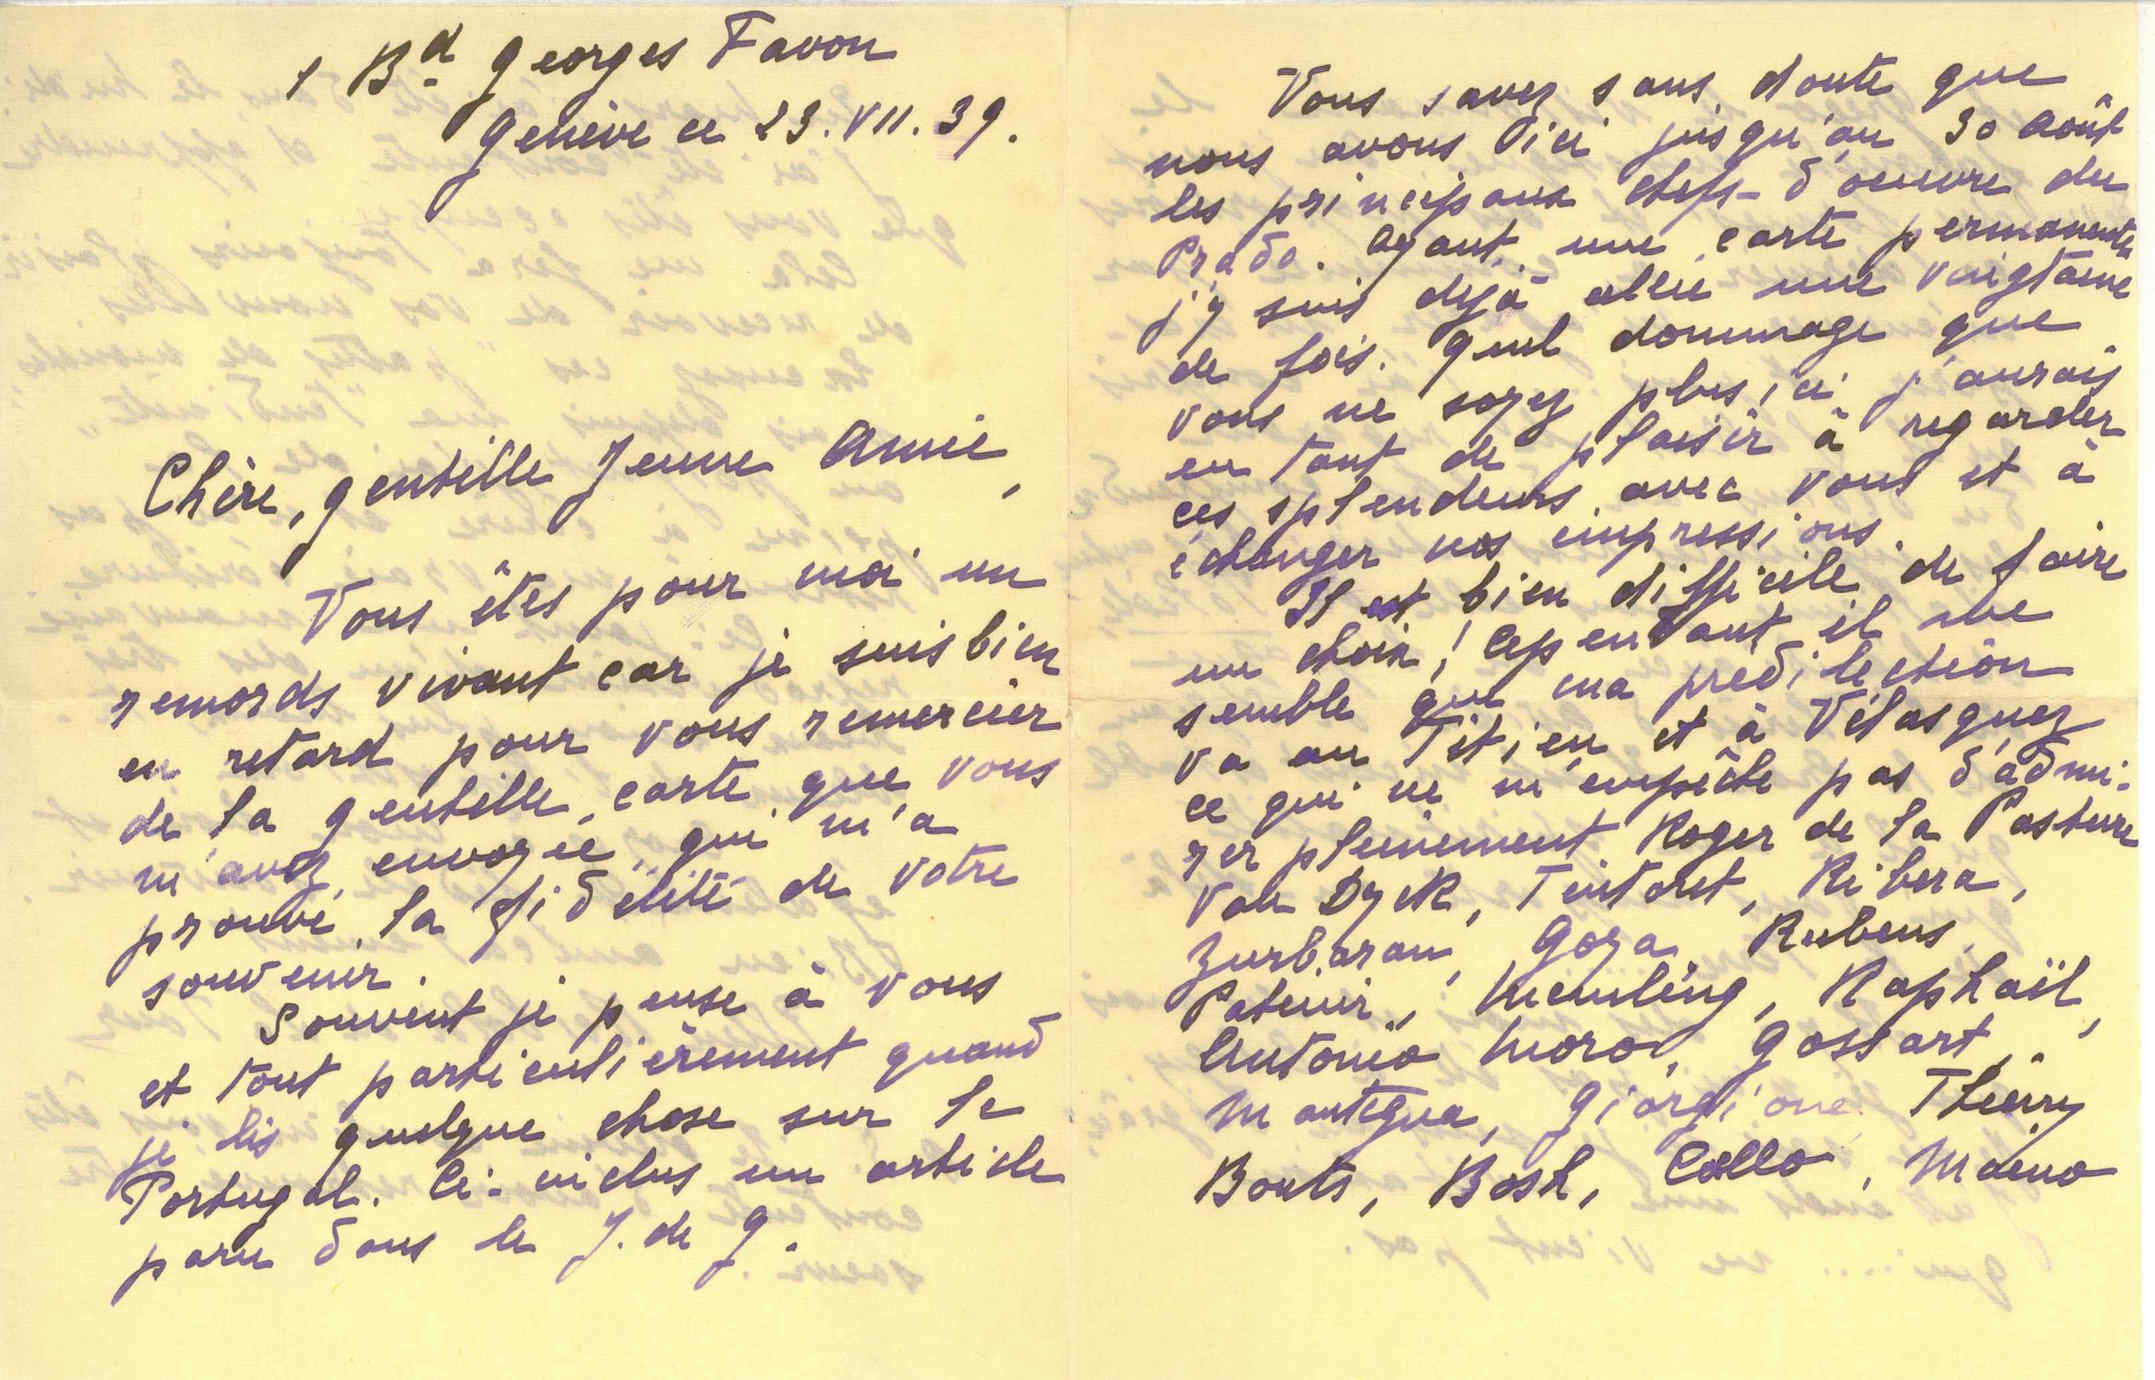 1 Bd Georges Favon
Genève ce 23.VII.39.
Chère, gentille Jeune Amie,
Vous êtes pour moi un
remords vivant car je suis bien
en retard pour vous remercier
de la gentille carte que vous
m'avez envoyée, qui m'a
prouvé la fidélité de votre
souvenir.
Souvent je pense à vous
et tout particulièrement quand
je lis quelque chose sur le
Portugal. Ci-inclus un article
paru dans le J. de G.
Vous savez sans doute que
nous avons ici jusqu'au 30 Août
les principaux chefs-d'oeuvre du
Prado. Ayant une carte permanente
j'y suis déjà allée une vingtaine
de fois. Quel dommage que
vous ne soyez plus ici j'aurais
eu tant de plaisir à regarder
ces splendeurs avec vous et à
échanger nos impressions.
Il est bien difficile de faire
un choix! Cependant il me
semble que ma prédilection
va au Titien et à Vélasquez
ce qui ne m'empêche pas d'admi-
rer pleinement Roger de la Pasture
Van Dyck, Tintoret, Ribera,
Zurbaran, Goya, Rubens,
Patenir, Memling, Raphaël,
Antonio Moro, Gossart,
Mantegna, Giorgione Thierry
Bouts, Bosh, Coello, Maino